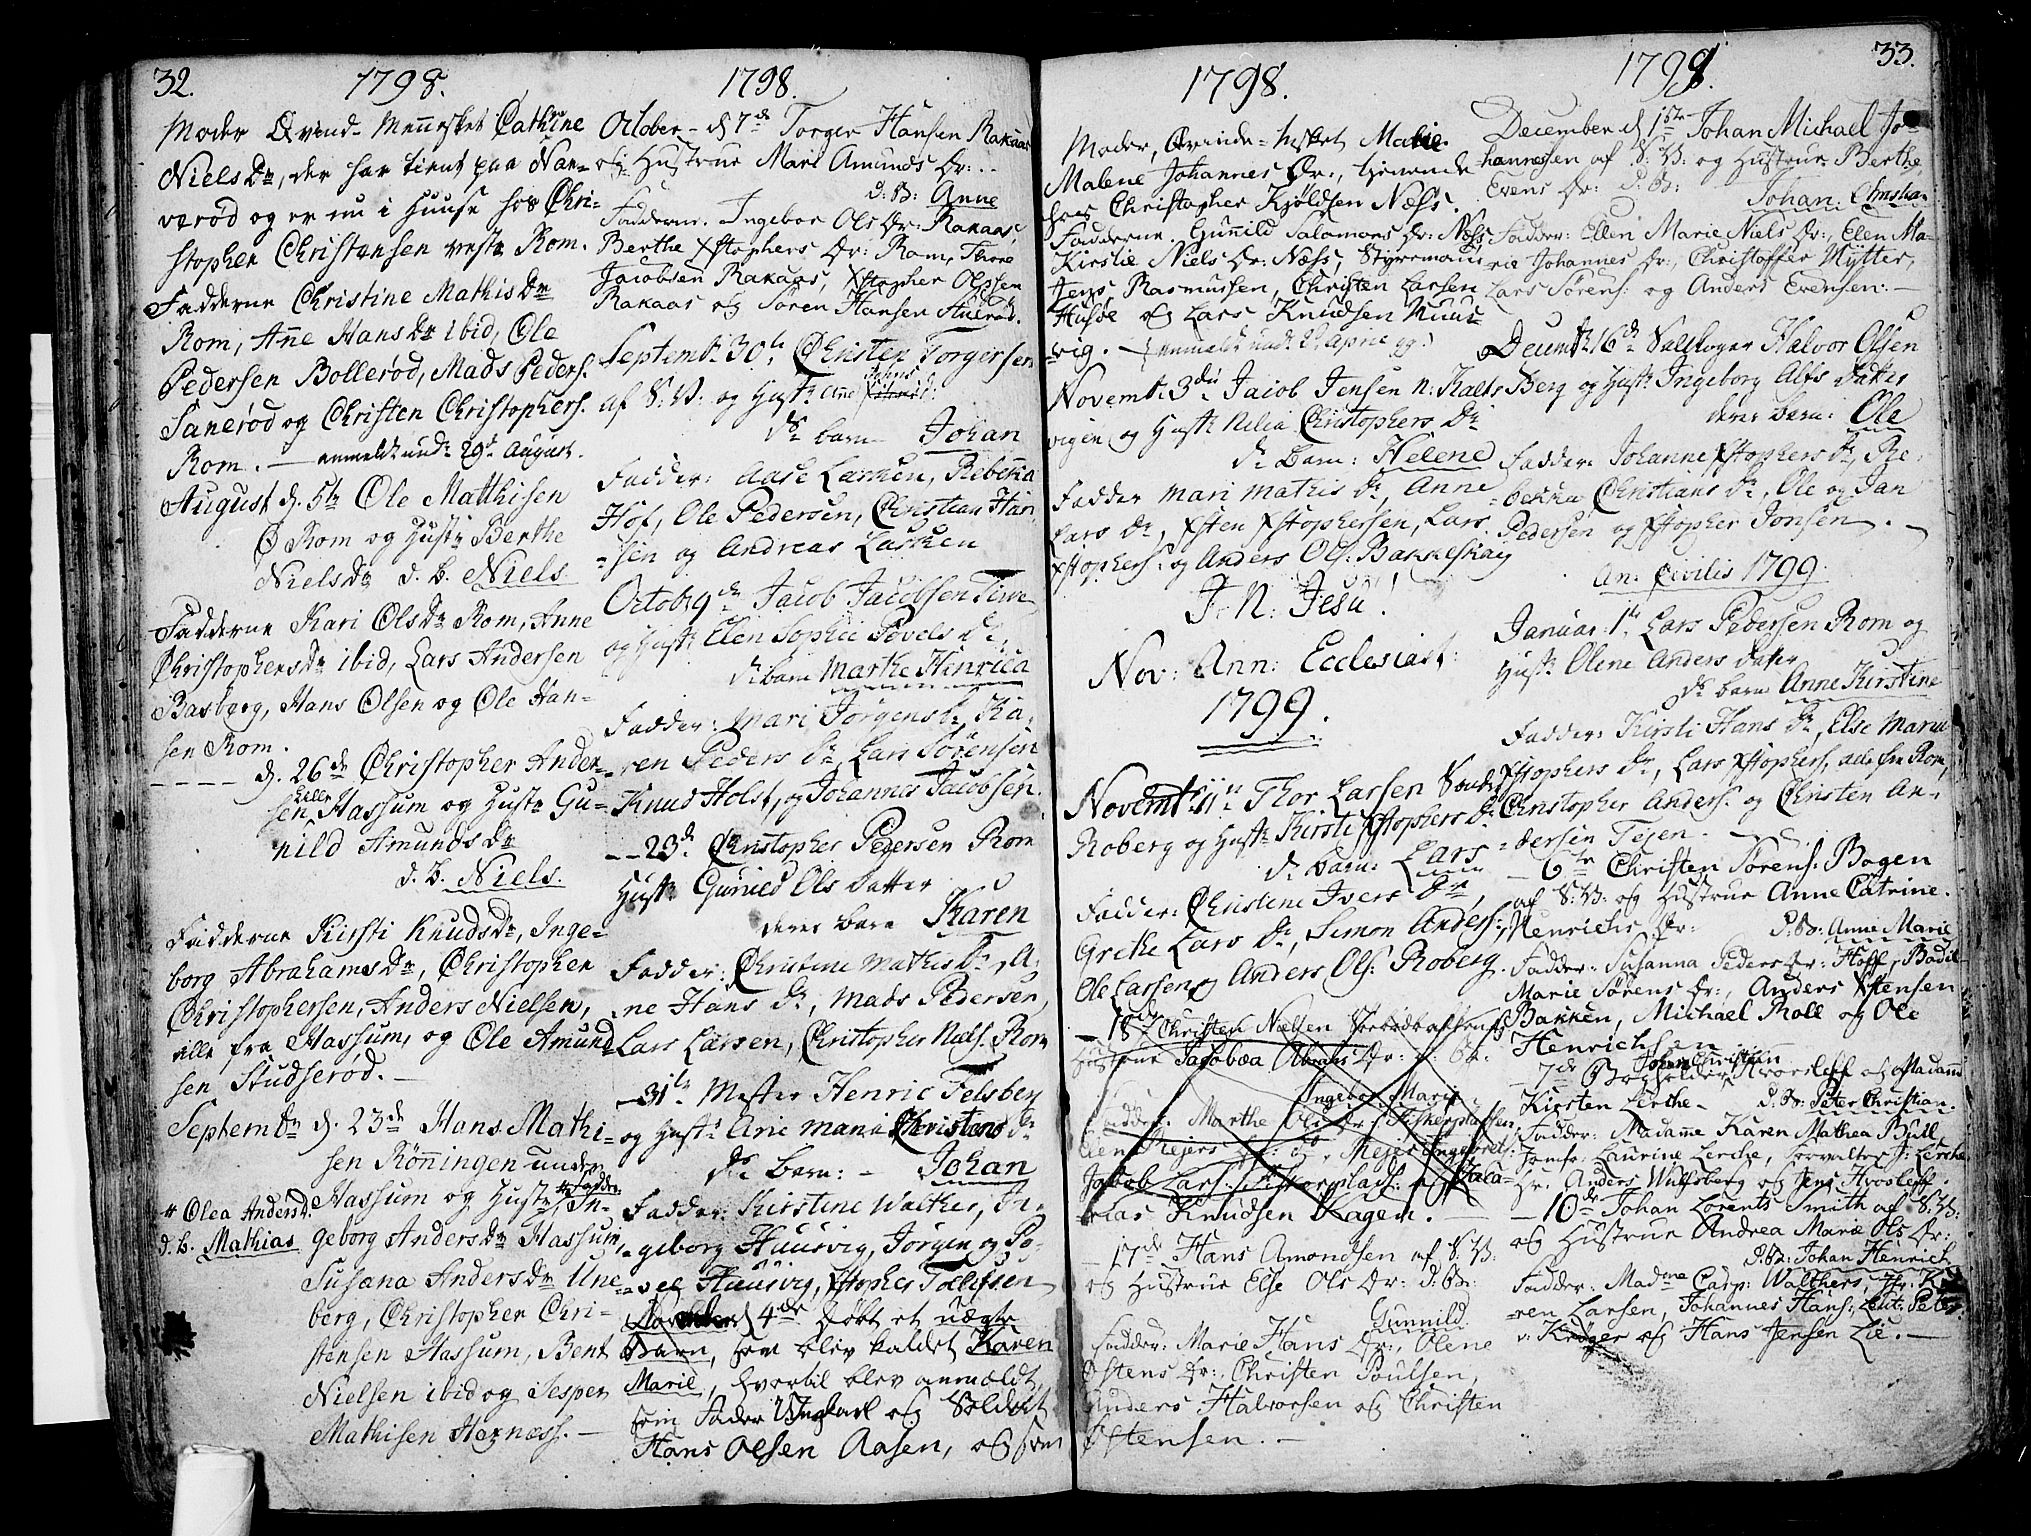 32.
1798.
Moder Qvind-Mennesket Cathrine
Niels Dr, der har tient paa Nar-
verød og er nu i Huuse hos Chri-
stopher Christensen vestr Rom.
Fadderne Christine Mathis Dr
Rom, Anne Hans Dr ibid, Ole
Pedersen Bollerød, Mads Peders.
Sanerød og Christen Christophers.
Rom. — anmeldt und. 29d August.
August d. 5te Ole Matthisen
Ø Rom og Hustr Berthe
Niels Dr d. B. Niels
Fadderne Kari Ols Dr Rom, Anne
Christophers Dr ibid, Lars Andersen
Basberg, Hans Olsen og Ole Han-
sen Rom.
---- d. 26de Christopher Ander-
sen Lille Hassum og Hustr Gu-
nild Amunds Dr
d. B. Niels.
Fadderne Kirsti Knuds Dr, Inge-
borg Abrahams Dr, Christopher
Christophersen, Anders Nielsen,
alle fra Hassum, og Ole Amund-
sen Studserød. —
Septembr d. 23de Hans Mathi-
sen Rönningen under
Hassum og Hustr # Fadder: In-
# Olea Andersd.
d. B. Mathias geborg Anders Dr Hassum,
Susana Anders Dr Une-
berg, Christopher Chri-
stensen Hassum, Bent
Nielsen ibid og Jesper
Mathisen Hernæss. —
1798.
October - d 7de Torger Hansen Rakaas
og Hustrue Mari Amunds Dr: -
d: B: Anne
Fadderne. Ingebor Ols Dr: Rakaas,
Berthe Xstophers Dr: Rom,
Jacobsen Rakaas, Xstopher Olssen
Rakaas og Søren Hansen
Septembr 30te Christen Torgersen
af S: V: og Hustr Ane Johns
Dr barn Johan
Fadder: Aase Larsen, Ribekka
Hof, Ole Pedersen, Christian Han-
sen og Andreas Larsen
Octobr 9de Jacob Jacobsen
og Hustr Elen Sophie Povels Dr.
d. barn Marthe Henrica
Fadder: Mari Jørgens Dr, Ka-
ren Peders Dr, Lars Sørensen
Knud Holst, og Johannes Jacobsen.
-- 23d. Christopher Pedersen Rom
Hustr Gunild Ols Datter
deres barn Karen
Fadder: Christine Mathis Dr, A-
ne Hans Dr, Mads Pedersen,
Lars Larsen, Christopher Niels. Rom
- 31te Mester Henric Felsberg
og Hustr Ane Maria Christens Dr
Dr barn: - Johan
Fadder: Kirstine Walther, In-
geborg Huusvig, Jørgen og Po-
vel Huusvig, Xstopher Tollefsen
d 4de Døbt et uægte
Barn, som blev kaldet Karen
Marie, hvortil blev anmeldt,
som Fader Ungkarl og Soldat
Hans Olsen Aasen, og som
1798.
Moder, Qvinde-Msket Malie
Malene Johannes Dr:, tjenende
hos Christopher Kjøldsen Næss.
Fadderne. Gunnild Salamons Dr: Næss
Kirstie Niels Dr: Næss, Styrmand
Jens Rasmussen, Christen Larsen
Husøe og Lars Knudsen Huus-
vig. -
Novembr 3die Jacob Jensen n: Kalts
vigen og Hustr Nilia Christophers Dr
Dr Barn: Helene
Fadder Mari Mathis Dr, Anne
Lars Dr, Xsten Xstophersen, Lars
Xstophers: og Anders Ols: Bakkeskay
I. N. Jesu!
Nov: Ann: Ecclesiast:
1799.
Novembr 11te Thor Larsen Søndr
Roberg og Hustr Kirsti Xstophers Dr
Dr Barn: Lars
Fadder: Christine Ivers Dr,
Grethe Lars Dr, Simon Anders:,
Ole Larsen og Anders Ols: Roberg.
- 18de Christen Nielsen
Hustrue Jacobæa Dr: d: B:
Ingebor Marie
Fadder: Marthe Ols Dr: Fiskerpladsen,
Jacob Lars: Fiskerplads: og
Knudsen Hagem.
- 17de Hans Amondsen af S: V:
og Hustrue Else Ols Dr: d: B:
Gunnild
Fadder: Marie Hans Dr:, Olene
Østens Dr: Christen Poulsen,
Anders Halvorsen og Christen
Østensen. —
1798.
33.
December d 1ste Johan Michael Jo-
hannesen af S: V: og Hustrue Berthe
Evens Dr: d: B: Johan Christian
Fadder: Ellen Marie Niels Dr:, Elen Ma-
rie Johannes Dr:, Christoffer Mytter,
Lars Sørens: og Anders Evensen: —
Decembr 16de Halvor Olsen
Berg og Hustr Ingeborg Alfs Datter
deres Barn: Ole
Fadder: Johanne Xstophers Dr, Re-
bekka Christians Dr, Ole og Jan
Pedersen og Xstopher Jonsen. —
An: Civilis 1799.
Januar: 1te Lars Pedersen Rom og
Hustr Olene Anders Datter
Dr barn Anne Kirstine
Fadder: Kirsti Hans Dr, Else Marie
Xstophers Dr, Lars Xstophers, alle fra Rom,
Christopher Anders: og Christen An-
dersen Tejen. —
- 6te Christen Sørens: Bogen
af S: V: og Hustrue Anne Catrine
Henrichs Dr: d: B: Anne Marie
Fadder: Susanna Peders Dr: Hoff, Bodil
Marie Sørens Dr:, Anders Xstensen
Bakken, Michael Moll og Ole
Henrichsen
- 7de Bogholder Johan Christian Hvosleff og Madame
Kirsten Lerche - d: B: Peter Christian.
Fadder: Madame Karen Mathea Bull,
Jomfr: Laurine Lerche, Forvalter H: Lerche
Hr. Anders Wulfsberg og Jens Hvosleff.
- 10de Johan Lorents Smith af S: V:
og Hustrue Andrea Marie Ols Dr:
d: B: Johan Henrich
Fadder: Madme Carp: Walthers, Jfr: Ka-
ren Larsen, Johannes Hans: Leut: Peter
v: Krøger og Hans Jensen Lie. —